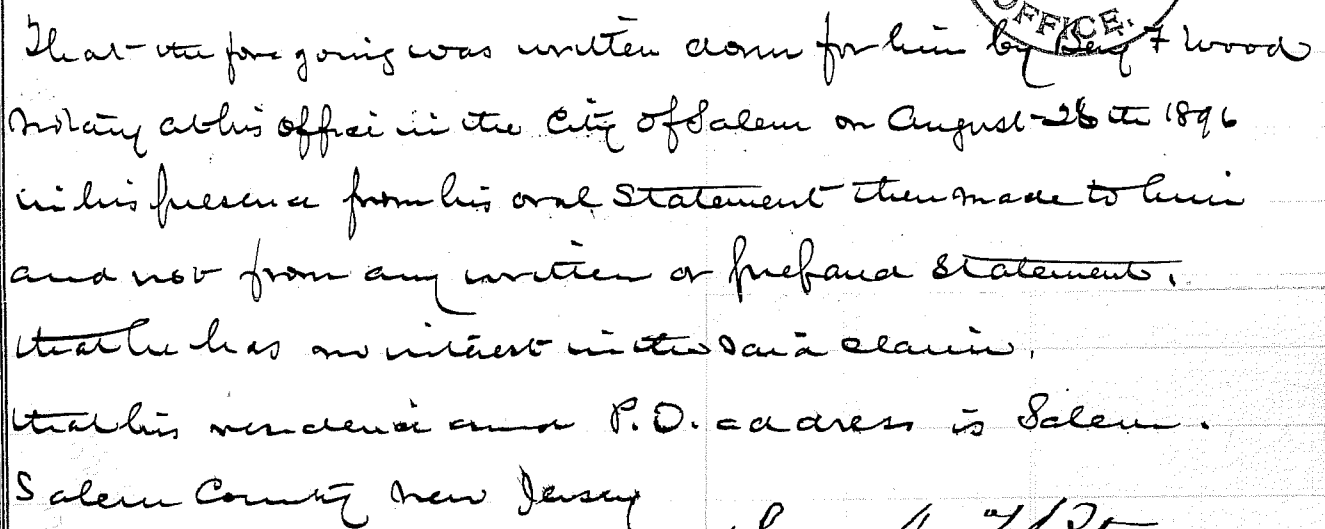 OFFICE.
That the fore going was written down for him by Benj F Wood
Notary at his office in the City of Salem on August 26th 1896
in his presence from his oral Statement then made to him
and not from any written or prepared Statement.
that he has no interest in the said claim.
that his residence and P.O. address is Salem.
Salem County New Jersey